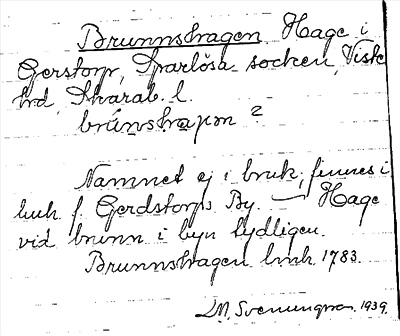 Brunnshagen Hage i
Gerstorp, Sparlösa socken, Viste
hrd, Skarab. l.
brúnshaɣon 2
Namnet ej i bruk, finnes i
lmh f. Gerdstorps By. — Hage
vid brunn i byn tydligen.
Brunnshagen lmh 1783.
M. Svenungsson 1939.